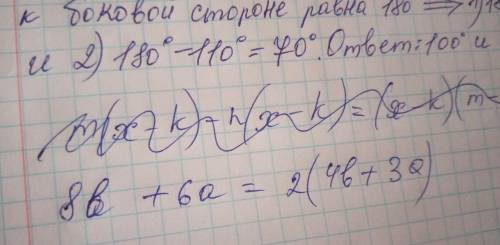 к боковой стороне равна 180 ⟹
и 2) 180° - 110° = 70°. Ответ: 100° и
m(x-k)-n(x-k)=(x-k)(m-
8b + 6a = 2(4b + 3a)